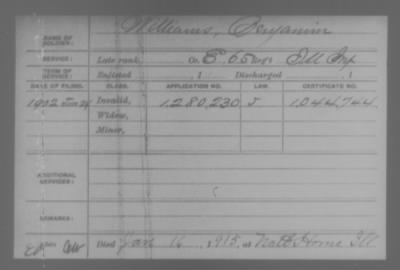 Williams, Benjamin
NAME OF SOLDIER:
SERVICE: Late rank, Co. E. 65 Reg't Ill Inf
TERM OF SERVICE: Enlisted , 1 Discharged , 1
DATE OF FILING. CLASS. APPLICATION NO. LAW. CERTIFICATE NO.
1902 Invalid, 1,280,230 J 1,044,744
Widow,
Minor,
ADDITIONAL SERVICES:
REMARKS:
Died Jan 16, 1915, at Nat'l Home Ill